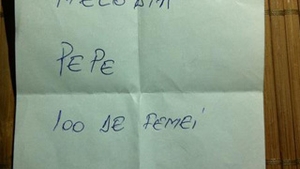 PEPE
100 DE FEMEI